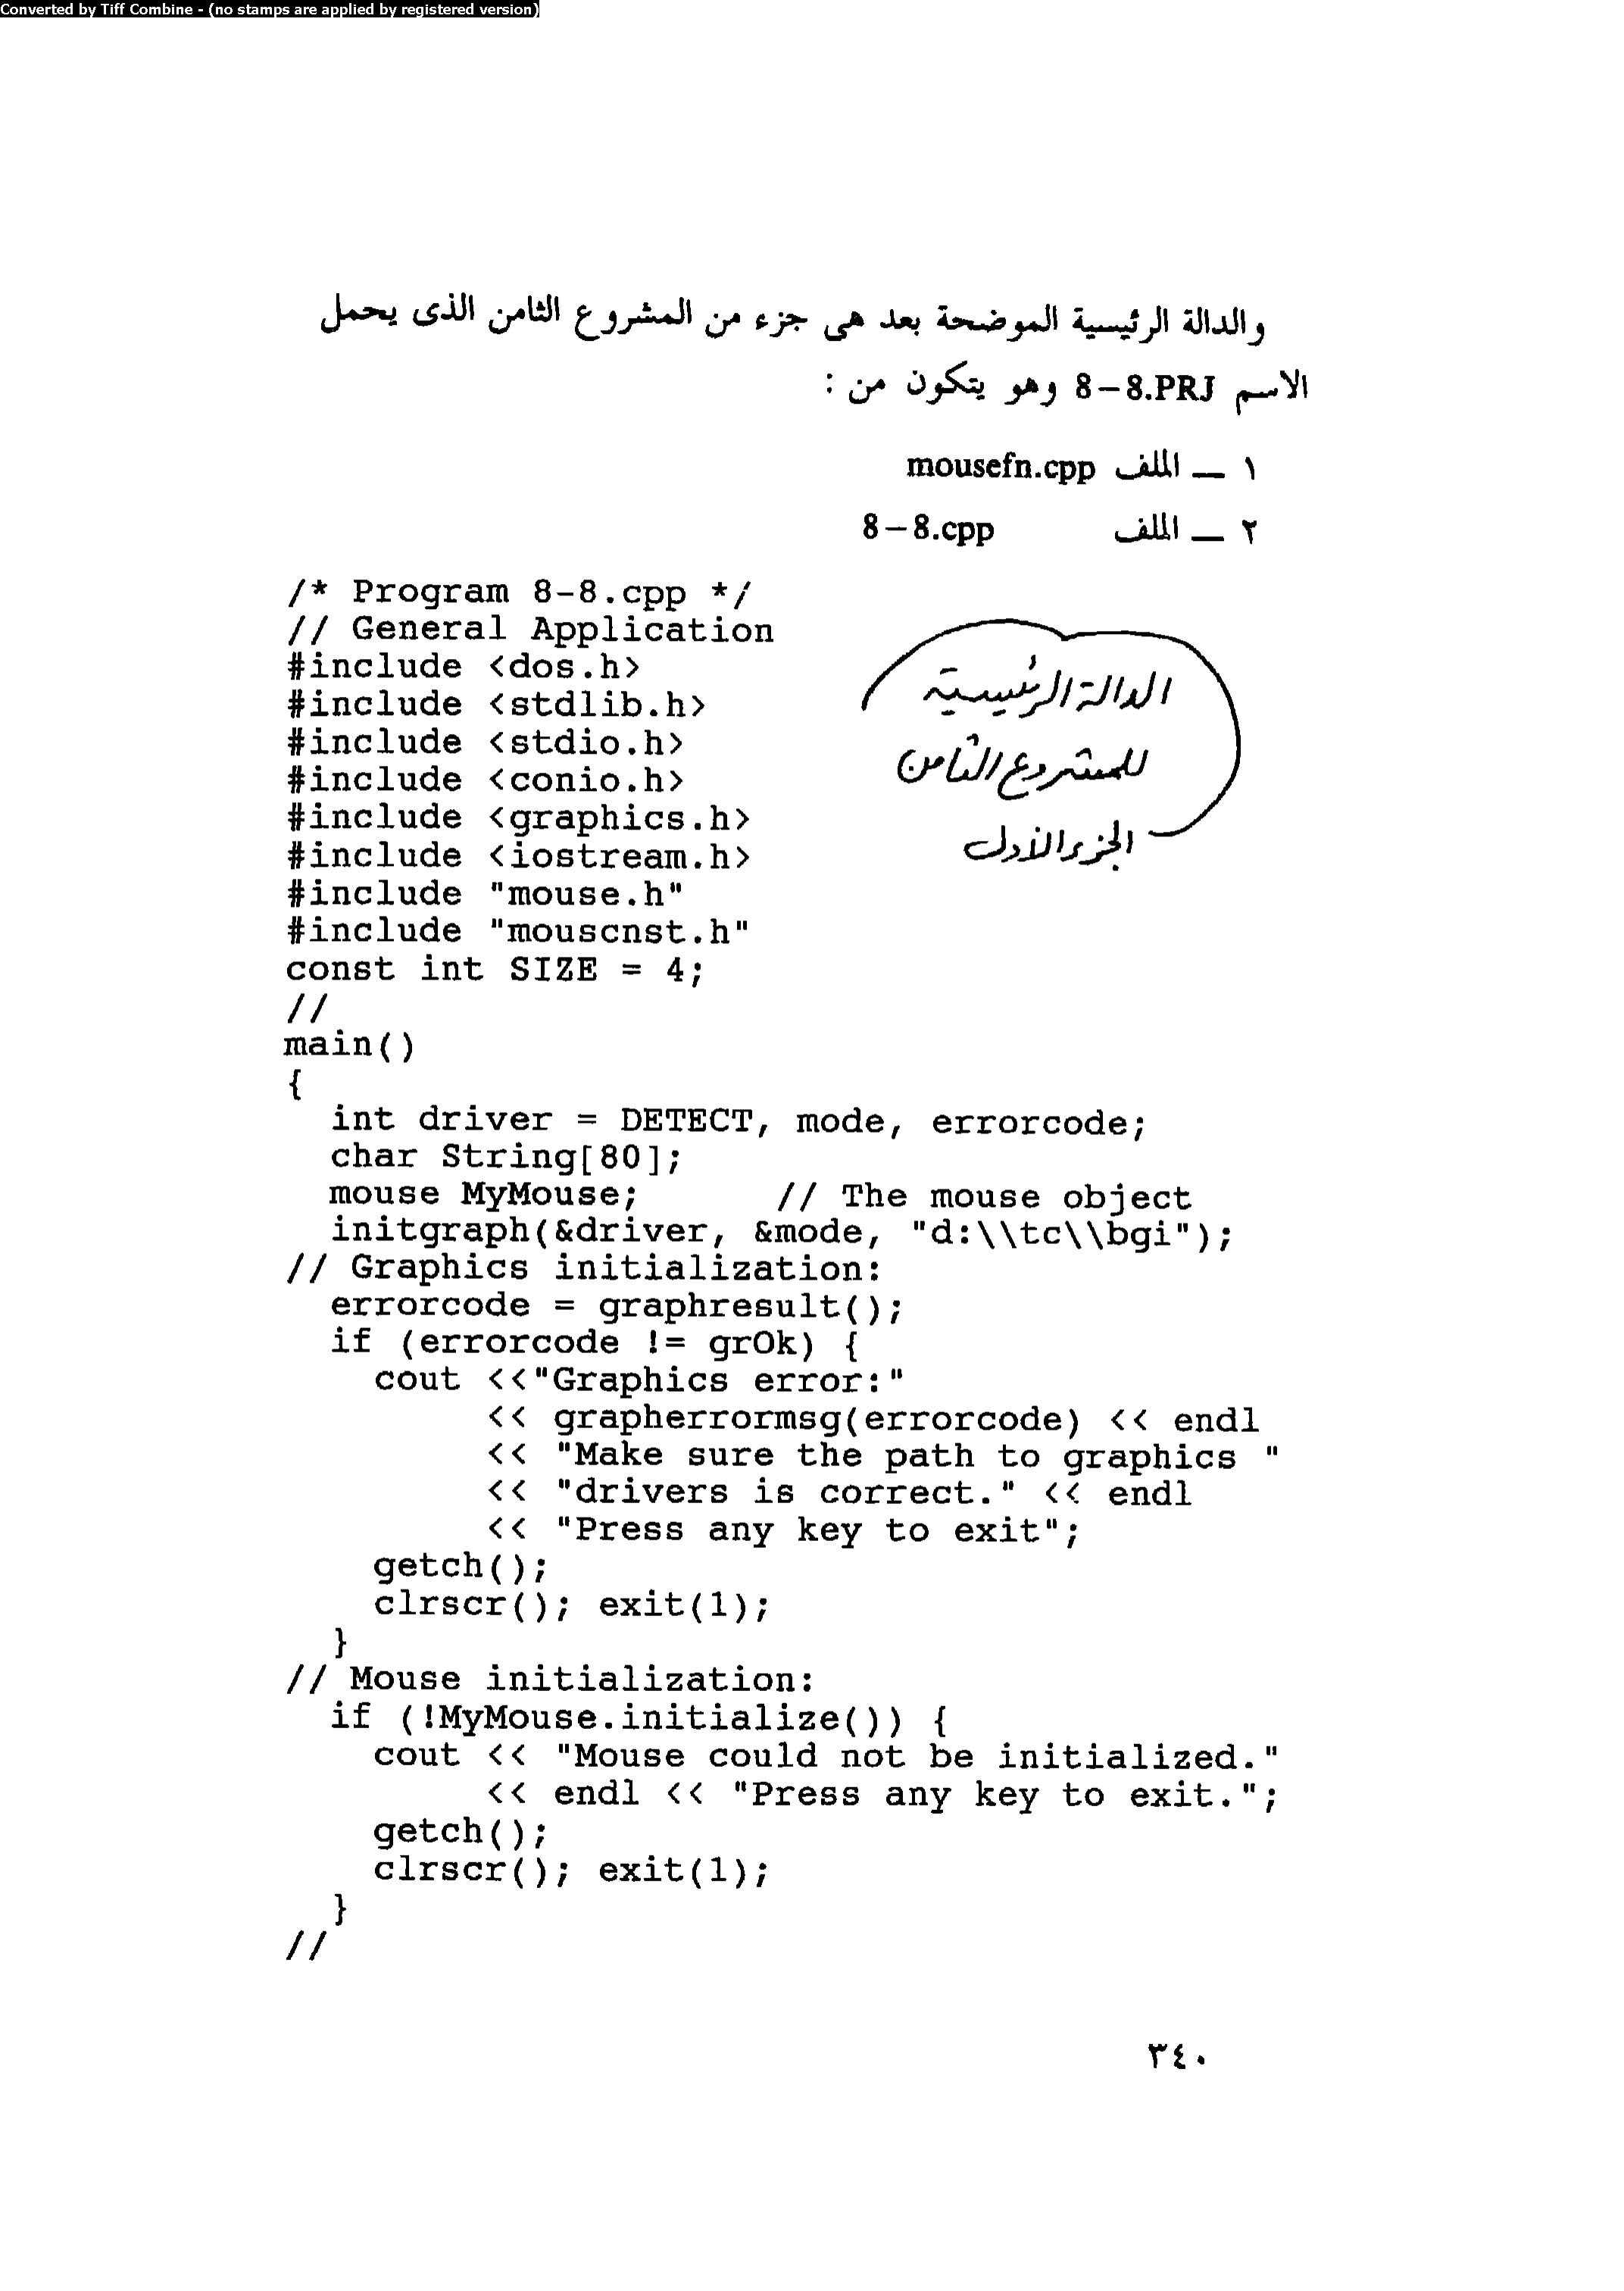 Converted by Tiff Combine - (no stamps are applied by registered version)
والدالة الرئيسية الموضحة بعد هى جزء من المشروع الثامن الذى يحمل
الاسم 8-8.PRJ وهو يتكون من :
١ — الملف mousefn.cpp
٢ — الملف 8-8.cpp
/* Program 8-8.cpp */
// General Application
#include <dos.h>
#include <stdlib.h>
#include <stdio.h>
#include <conio.h>
#include <graphics.h>
#include <iostream.h>
#include "mouse.h"
#include "mouscnst.h"
const int SIZE = 4;
//
main()
{
  int driver = DETECT, mode, errorcode;
  char String[80];
  mouse MyMouse;      // The mouse object
  initgraph(&driver, &mode, "d:\\tc\\bgi");
// Graphics initialization:
  errorcode = graphresult();
  if (errorcode != grOk) {
    cout <<"Graphics error:"
         << grapherrormsg(errorcode) << endl
         << "Make sure the path to graphics "
         << "drivers is correct." << endl
         << "Press any key to exit";
    getch();
    clrscr(); exit(1);
  }
// Mouse initialization:
  if (!MyMouse.initialize()) {
    cout << "Mouse could not be initialized."
         << endl << "Press any key to exit.";
    getch();
    clrscr(); exit(1);
  }
//
الدالة الرئيسية
للمشروع الثامن
الجزء الأول
٣٤٠